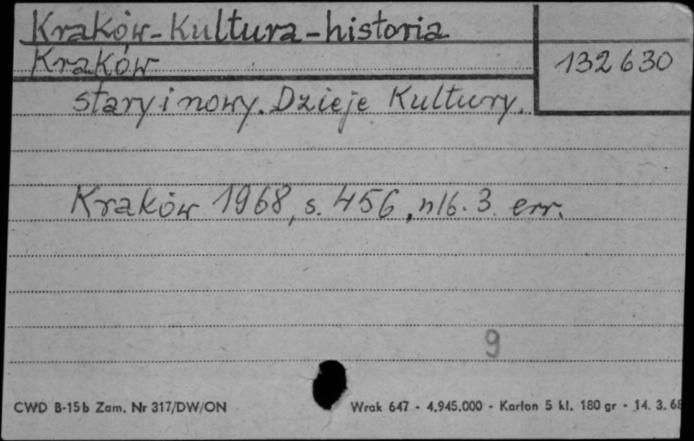 Kraków-Kultura-historia
Kraków
132630
stary i nowy. Dzieje Kultury.
Kraków 1968, s. 456, nlb. 3 err.
9
CWD B-15b Zam. Nr 317/DW/ON
Wrak 647 - 4.945.000 - Karton 5 kl. 180 gr - 14. 3. 68